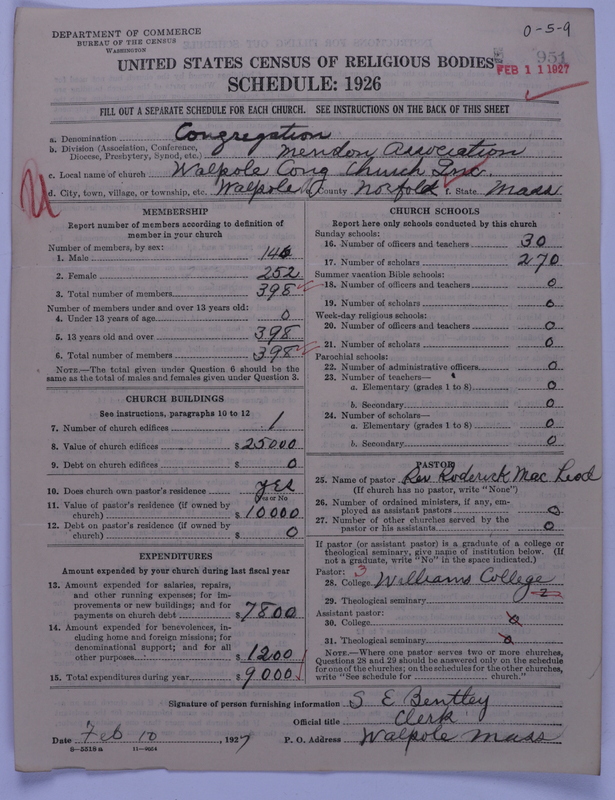 DEPARTMENT OF COMMERCE
BUREAU OF THE CENSUS
WASHINGTON
0-5-9
951
FEB 11 1927
UNITED STATES CENSUS OF RELIGIOUS BODIES
SCHEDULE: 1926
FILL OUT A SEPARATE SCHEDULE FOR EACH CHURCH. SEE INSTRUCTIONS ON THE BACK OF THIS SHEET
a. Denomination Congregation
b. Division (Association, Conference, Diocese, Presbytery, Synod, etc.) Mendon Association
c. Local name of church Walpole Cong Church Inc.
d. City, town, village, or township, etc. Walpole County Norfolk f. State Mass
MEMBERSHIP
Report number of members according to definition of
member in your church
Number of members, by sex:
1. Male 146
2. Female 252
3. Total number of members 398
Number of members under and over 13 years old:
4. Under 13 years of age 0
5. 13 years old and over 398
6. Total number of members 398
NOTE.—The total given under Question 6 should be
same as the total of males and females given under Question 3.
CHURCH BUILDINGS
See instructions, paragraphs 10 to 12
7. Number of church edifices 1
8. Value of church edifices $ 25000
9. Debt on church edifices $ 0
10. Does church own pastor's residence yes
Yes or No
11. Value of pastor's residence (if owned by
church) $ 10000
12. Debt on pastor's residence (if owned by
church) $ 0
EXPENDITURES
Amount expended by your church during last fiscal year
13. Amount expended for salaries, repairs,
and other running expenses; for im-
provements or new buildings; and for
payments on church debt $ 7800
14. Amount expended for benevolences, in-
cluding home and foreign missions; for
denominational support; and for all
other purposes $ 1200
15. Total expenditures during year $ 9000
CHURCH SCHOOLS
Report here only schools conducted by this church
Sunday schools:
16. Number of officers and teachers 30
17. Number of scholars 270
Summer vacation Bible schools:
18. Number of officers and teachers 0
19. Number of scholars 0
Week-day religious schools:
20. Number of officers and teachers 0
21. Number of scholars 0
Parochial schools:
22. Number of administrative officers 0
23. Number of teachers—
a. Elementary (grades 1 to 8) 0
b. Secondary 0
24. Number of scholars—
a. Elementary (grades 1 to 8) 0
b. Secondary 0
PASTOR
25. Name of pastor Rev Roderick Mac Leod
(If church has no pastor, write "None")
26. Number of ordained ministers, if any, em-
ployed as assistant pastors 0
27. Number of other churches served by the
pastor or his assistants 0
If pastor (or assistant pastor) is a graduate of a college or
theological seminary, give name of institution below. (If
not a graduate, write "No" in the space indicated.)
Pastor: 3
28. College Williams College
29. Theological seminary 2
Assistant pastor:
30. College 0
31. Theological seminary 0
NOTE.—Where one pastor serves two or more churches,
Questions 28 and 29 should be answered only on the schedule
for one of the churches; on the schedules for the other churches,
write "See schedule for church."
Signature of person furnishing information S E Bentley
Official title Clerk
Date Feb 10, 1927 P. O. Address Walpole Mass
8—5518 a 11—9664